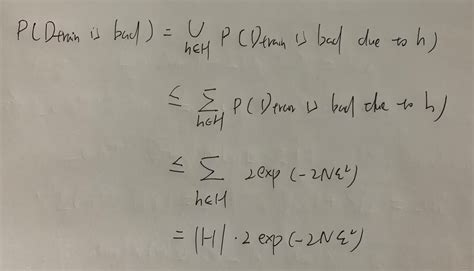 P(Dtrain is bad) = ∪h∈H P(Dtrain is bad due to h)
≤ Σh∈H P(Dtrain is bad due to h)
≤ Σh∈H 2exp(-2Nε²)
= |H| · 2 exp(-2Nε²)